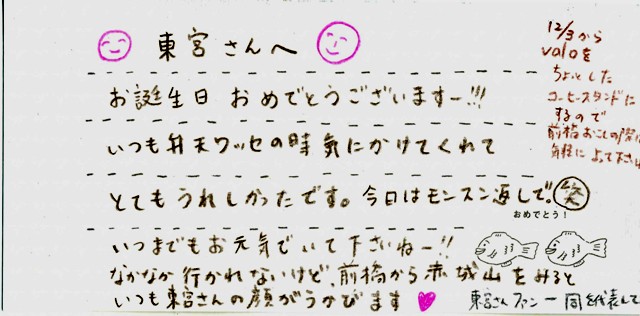 東宮さんへ
お誕生日 おめでとうございますー!!!
いつも弁天ワッセの時気にかけてくれて
とてもうれしかったです。今日はモンスン返しで。笑
おめでとう!
いつまでもお元気でいて下さいねー!!
なかなか行かれないけど、前橋から赤城山をみると
いつも東宮さんの顔がうかびます
12/3から
valoを
ちょっとした
コーヒースタンドに
するので
前橋おこしの際は
気軽に よって下さい
東宮さんファン一同を代表して